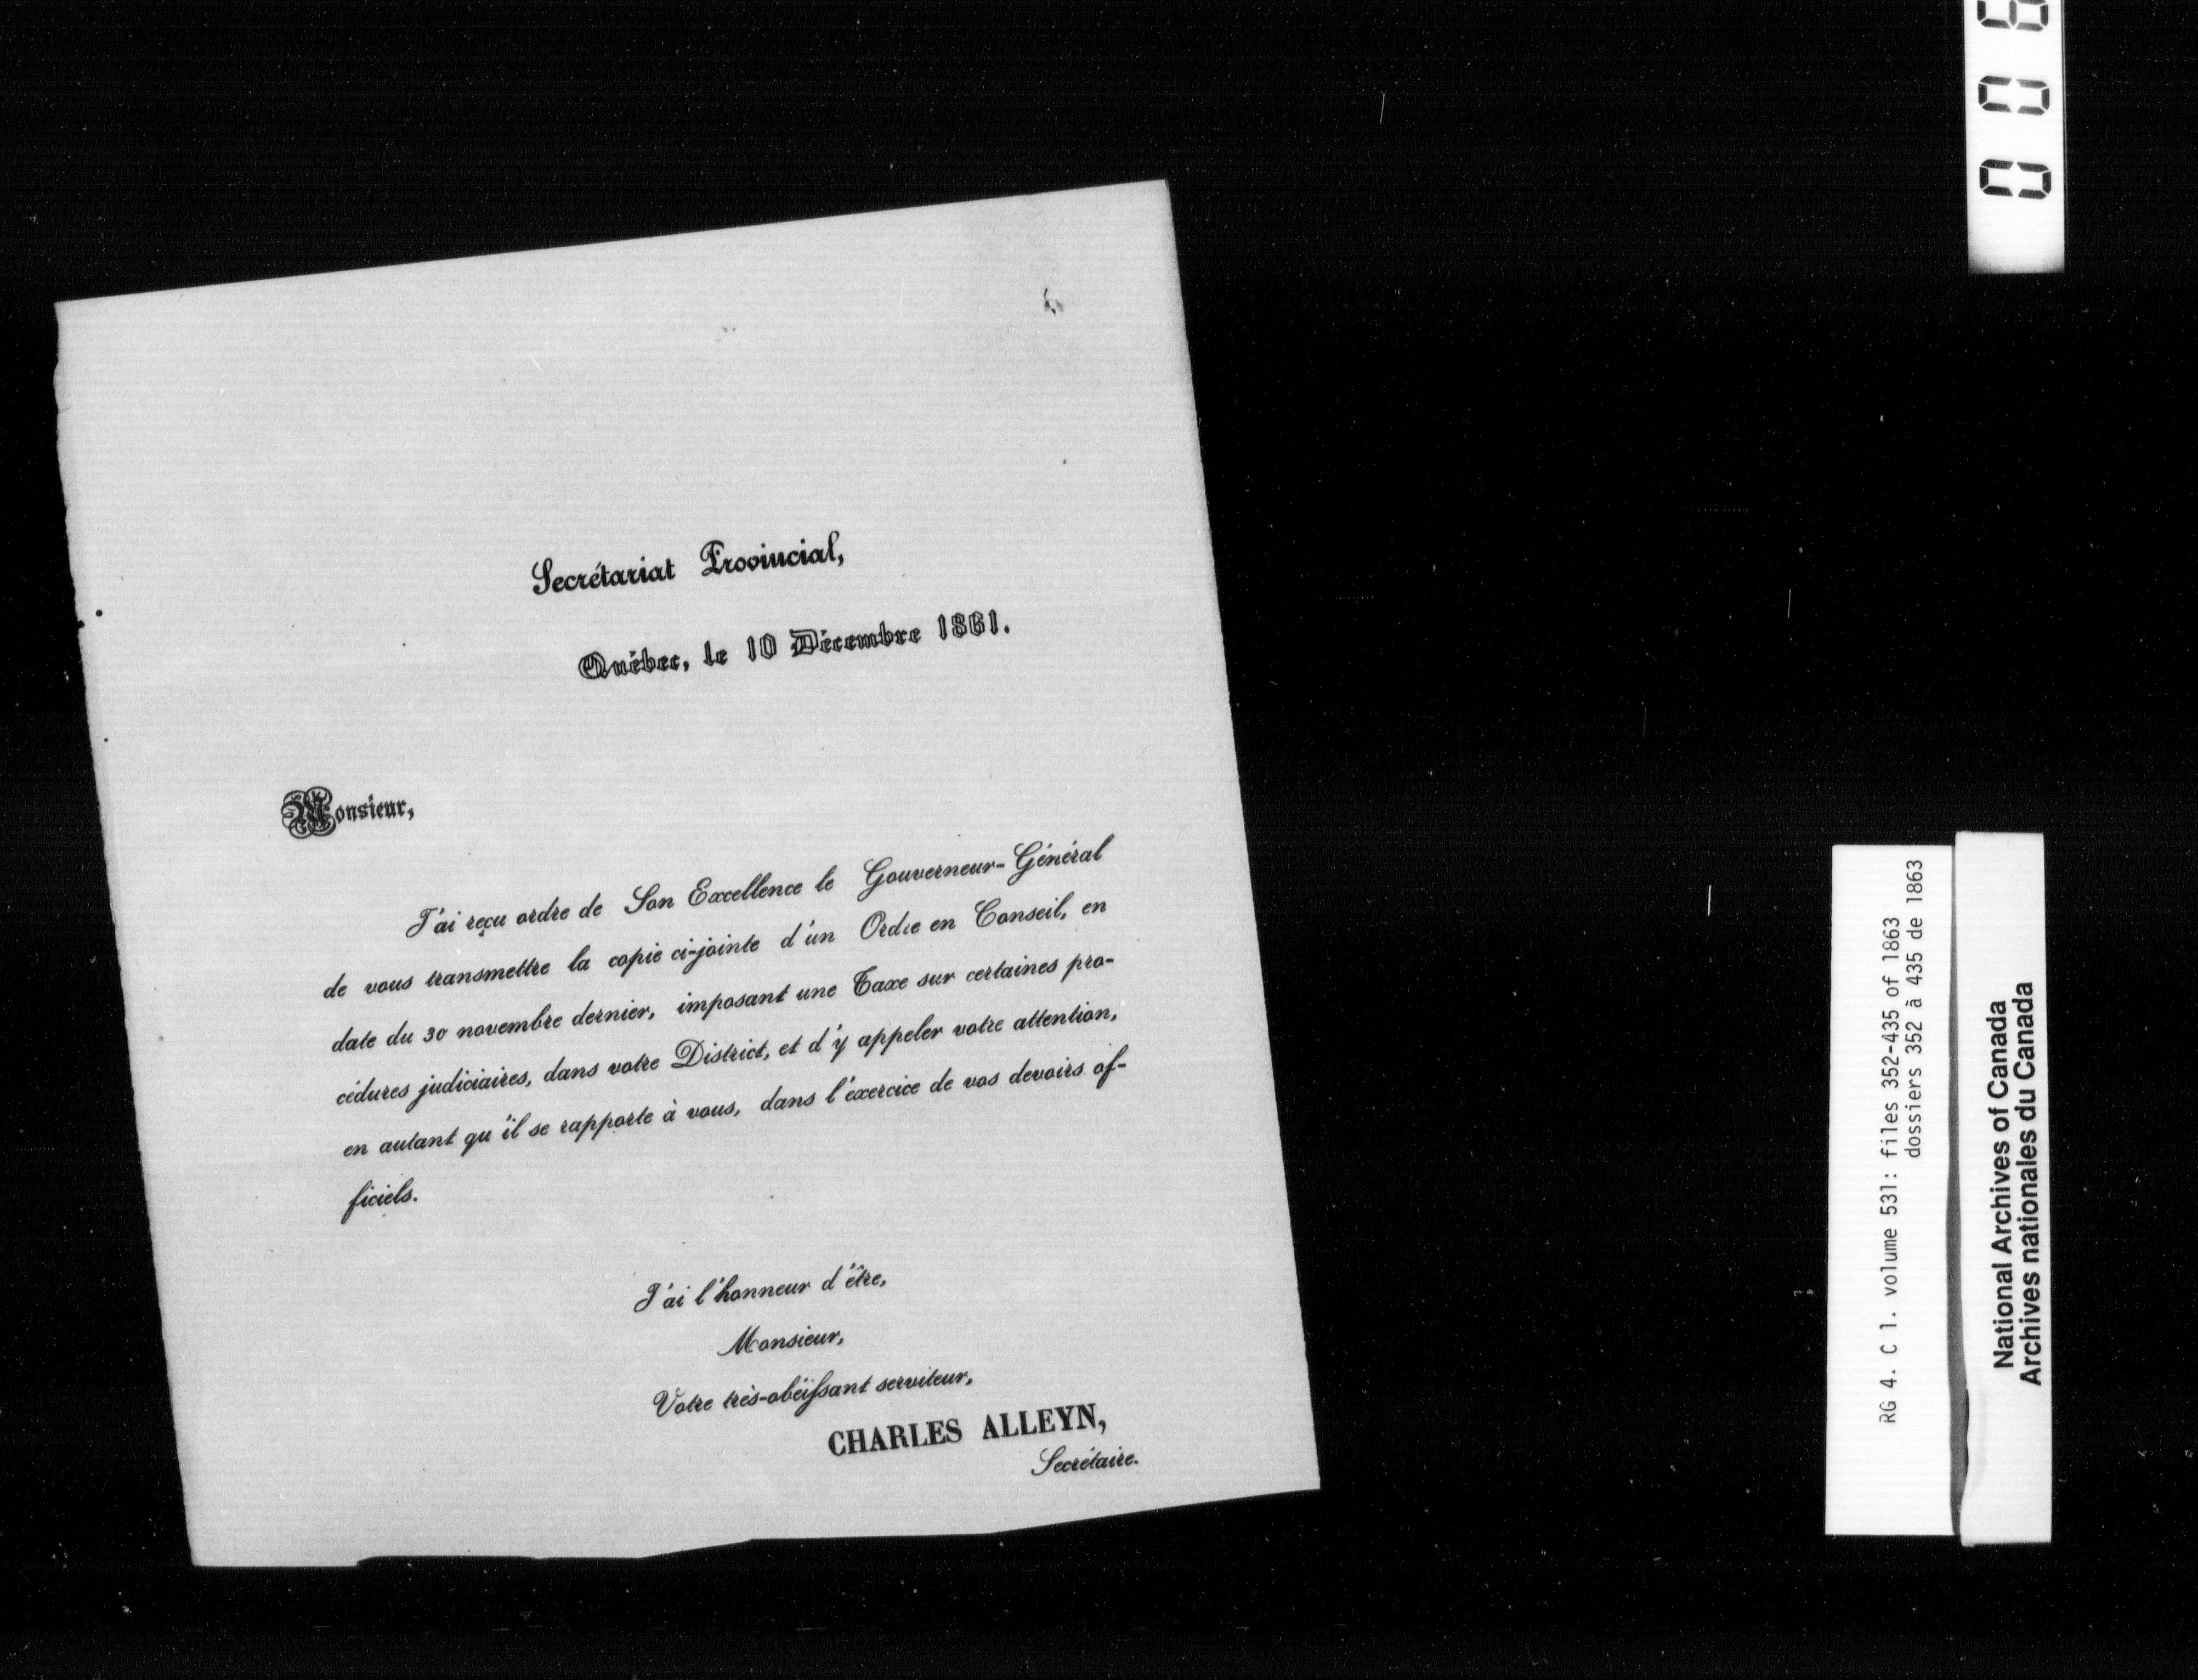 Secrétariat Provincial,
Québec, le 10 Décembre 1861.
Monsieur,
J'ai reçu ordre de Son Excellence le Gouverneur-Général
de vous transmettre la copie ci-jointe d'un Ordre en Conseil, en
date du 30 novembre dernier, imposant une Taxe sur certaines pro-
cédures judiciaires, dans votre District, et d'y appeler votre attention,
en autant qu'il se rapporte à vous, dans l'exercice de vos devoirs of-
ficiels.
J'ai l'honneur d'être,
Monsieur,
Votre très-obéissant serviteur,
CHARLES ALLEYN,
Secrétaire.
RG 4. C 1. volume 531: files 352-435 of 1863
dossiers 352 à 435 de 1863
National Archives of Canada
Archives nationales du Canada